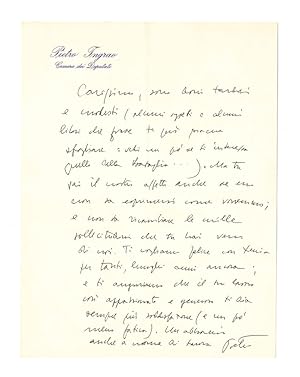 Pietro Ingrao
Camera dei Deputati
Carissimo, sono doni tardivi
e modesti (alcuni oggetti e alcuni
libri che forse ti può piacere
sfogliare: vedi un po' se ti interessa
quello della battaglia...). Ma tu
sai il nostro affetto anche se
non sa esprimersi come vorremmo;
e non sa ricambiare le mille
sollecitudini che tu hai verso
di noi. Ti vogliamo felice con
per tanti, lunghi anni ancora;
e ti auguriamo che il tuo lavoro
così appassionato e generoso ti dia
sempre più soddisfazione (e un po'
meno fatica). Un abbraccio
anche a nome di Laura Pietro